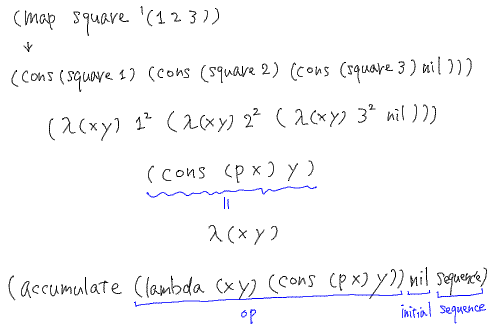 (map square '(1 2 3))
↓
(cons (square 1) (cons (square 2) (cons (square 3) nil)))
(λ(x y) 1² (λ(x y) 2² (λ(x y) 3² nil)))
(cons (p x) y)
||
λ(x y)
(accumulate (lambda (x y) (cons (p x) y)) nil sequence)
op initial sequence